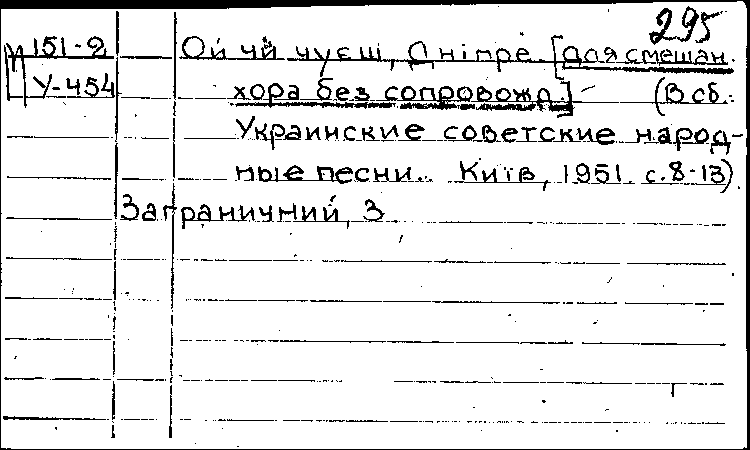 295
151-2 Ой чи чуєш, Дніпре. [для смешан.
У-454 хора без сопровожд.] (В сб.:
Украинские советские народ-
ные песни. Київ, 1951. с. 8-13)
Заграничний, З.